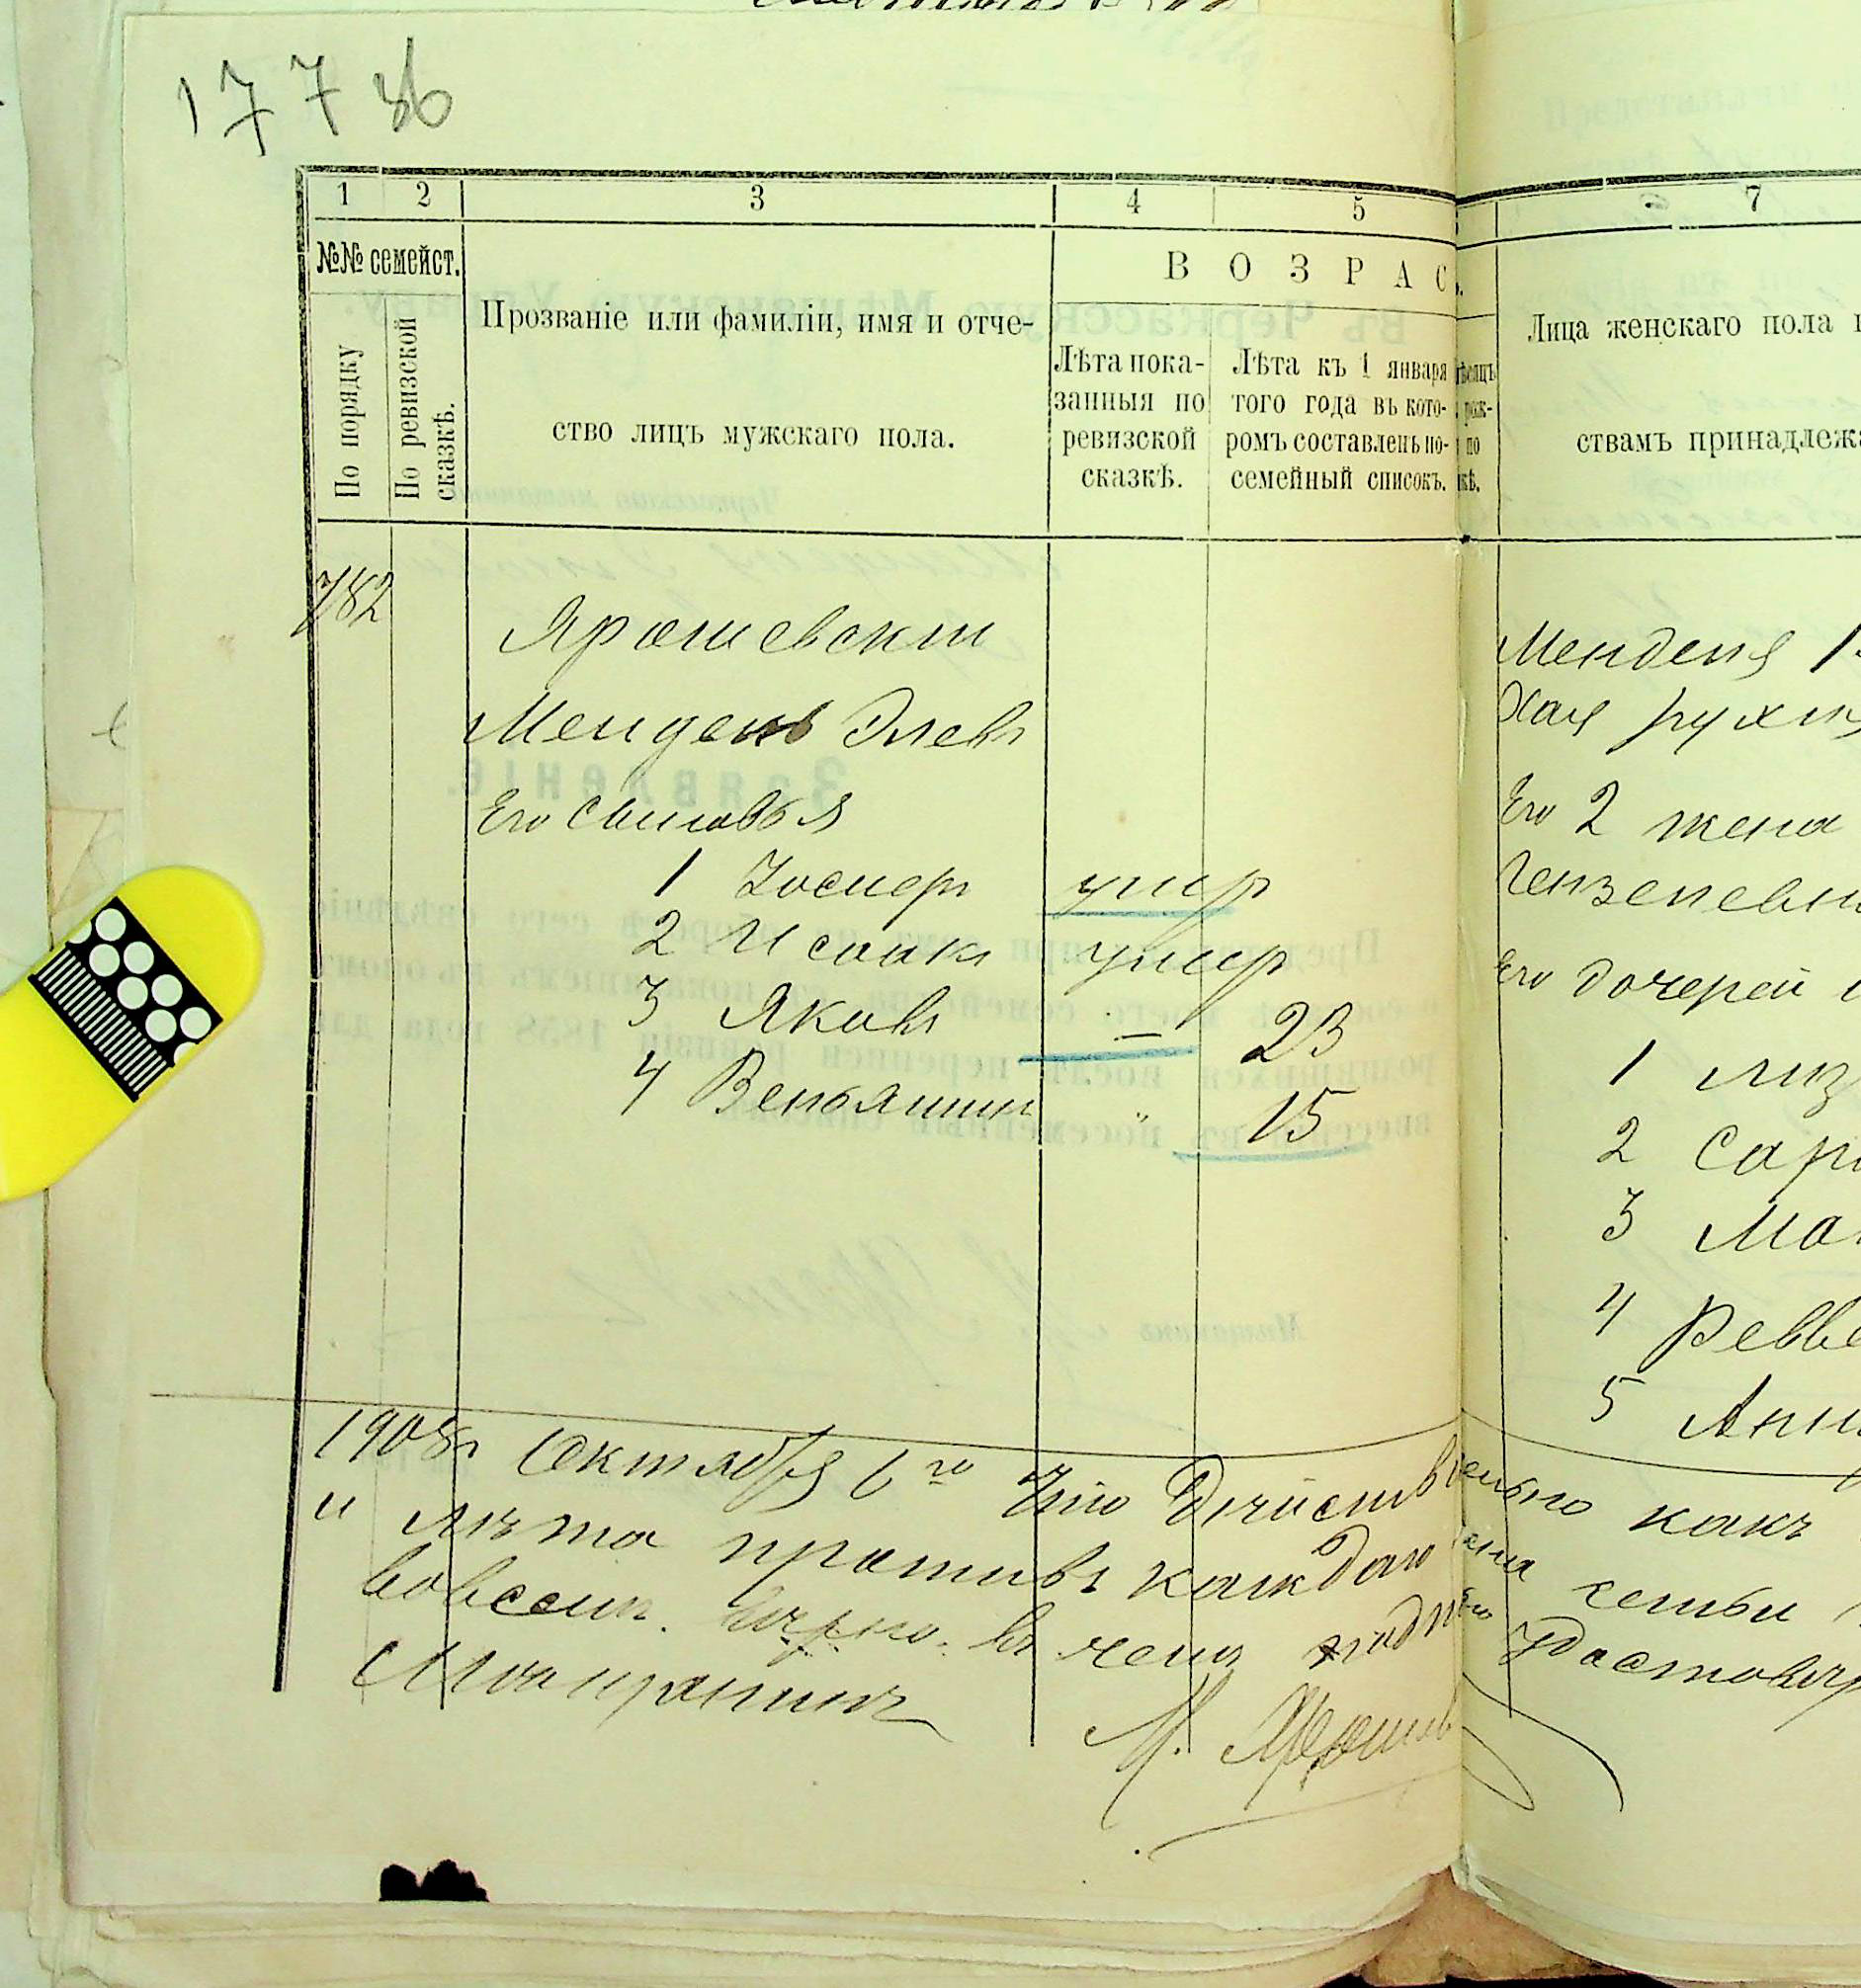 177 об
1 2 3 4 5
7
№№ семейст.
По порядку
По ревизской сказкѣ.
Прозваніе или фамиліи, имя и отче-
ство лицъ мужскаго пола.
ВОЗРАС
Лѣта пока-
занныя по
ревизской
сказкѣ.
Лѣта къ 1 января
того года въ кото-
ромъ составленъ по-
семейный списокъ.
Лица женскаго пола
ствамъ принадлеж
782
Ярошевскій
Мендель Элевъ
Его сыновья
1 Іосифъ умеръ
2 Исаакъ умеръ
3 Яковъ — 23
4 Веньяминъ " 15
Менделя 1
Хая
Его 2 жена
Его дочерей
1 Лиз
2 Сар
3 Ма
4 Ревве
5 Анн
1908г Октября 6го Что дѣйств ельно какъ
и лѣта противъ каждаго семьи
вовсемъ вѣрно. въ чемъ
Мѣщанинъ
М. Ярошев